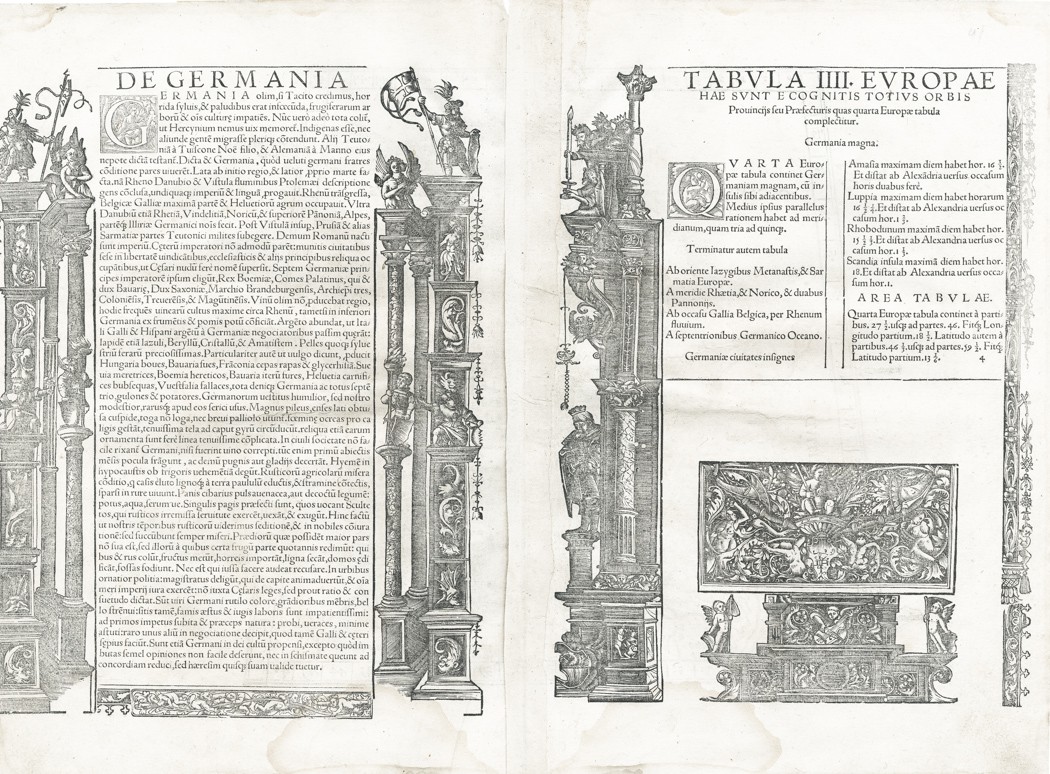 DE GERMANIA
GERMANIA olim, si Tacito credimus, hor
rida syluis, & paludibus erat infœcūda, frugiferarum ar
borū & oīs culturę impatiēs. Nūc uero adeo tota colit̄,
ut Hercynium nemus uix memoret̄. Indigenas esse, nec
aliunde gentē migrasse pleriq; cōtendunt. Alij Teuto-
niā à Tuiscone Noë filio, & Alemaniā à Manno eius
nepote dictā testant̄. Dicta & Germania, quòd ueluti germani fratres
cōditione pares uiueret̄. Lata ab initio regio, & latior, pprio marte fa-
cta, nā Rheno Danubio & Vistula fluminibus Ptolemæi descriptione
gens cōclusa, undiquaq; imperiū & linguā, ꝓrogauit. Rhenū trāsgressa,
Belgicæ Galliæ maximā partē & Heluetiorū agrum occupauit. Vltra
Danubiū etiā Rhetiā, Vindelitiā, Noricū, & superiorē Pānoniā, Alpes,
partēq; Illiriæ Germanici nois fecit. Post Vistulā insup, Prussiā & alias
Sarmatiæ partes Teutonici milites subegere. Demum Romanū nacti
sunt imperiū. Cęterū imperatori nō admodū parēt: munitis ciuitatibus
sese in libertatē uindicātibus, ecclesiasticis & alijs principibus reliqua oc
cupātibus, ut Cęsari nudū ferè nomē supersit. Septem Germaniæ prin-
cipes imperatorē ipsum eligūt. Rex Boemiæ, Comes Palatinus, qui &
dux Bauarię, Dux Saxoniæ, Marchio Brandeburgensis, Archiepī tres,
Coloniēsis, Treuerēsis, & Magūtinēsis. Vinū olim nō, pducebat regio,
hodie frequēs uinearū cultus maxime circa Rhenū, tametsi in inferiori
Germania ex frumētis & pomis potū cōficiāt. Argēto abundat, ut Ita-
li Galli & Hispani argētū à Germaniæ negociatoribus passim quærāt:
lapidē etiā lazuli, Beryllū, Cristallū, & Amatistem. Pelles quoq; sylue
striū ferarū preciosissimas. Particulariter autē ut uulgo dicunt, , pducit
Hungaria boues, Bauaria sues, Frāconia cepas rapas & glycerhisā. Sue
uia meretrices, Boemia hereticos, Bauaria iterū fures, Heluetia carnifi-
ces bubsequas, Vuestfalia fallaces, tota deniq; Germania ac totus septē
trio, gulones & potatores. Germanorum uestitus humilior, sed nostro
modestior, rarusq; apud eos serici usus. Magnus pileus, enses lati obtu
sa cuspide, toga nō loga, nec breui palliolo utunt̄. Fœminę ocreas pro ca
ligis gestāt, tenuissima tela ad caput gyrū circūducūt. reliqua etiā earum
ornamenta sunt ferè linea tenuissime cōplicata. In ciuili societate nō fa-
cile rixant̄ Germani, nisi fuerint uino correpti. tūc enim primū abiectis
mēsis pocula frāgunt, ac demū pugnis aut gladijs decertāt. Hyemē in
hypocaustis ob frigoris uehemētiā degūt. Rusticorū agricolarū misera
cōditio, q̄ casis e luto lignoq; à terra paululū eductis, & stramine cōtectis,
sparsi in rure uiuunt. Panis cibarius puls auenacea, aut decoctū legumē:
potus, aqua, serum ue. Singulis pagis præfecti sunt, quos uocant Sculte
tos, qui rusticos irremissa seruitute exercēt, uexāt, & exugūt. Hinc factū
ut nostris tēporibus rusticorū uiderimus seditionē, & in nobiles cōiura
tionē: sed succubunt semper miseri. Prædiorū quæ possidēt maior pars
nō sua est, sed illorū à quibus certa frugū parte quotannis redimūt: qui
bus & rus colūt, fructus metūt, horreis importāt, ligna secāt, domos ędi
ficāt, fossas fodiunt. Nec est qui iussa facere audeat recusare. In urbibus
ornatior politia: magistratus deligūt, qui de capite animaduertūt, & oia
meri imperij iura exercēt: nō iuxta Cęsaris leges, sed prout ratio & con
suetudo dictat. Sūt uiri Germani rutilo colore, grādioribus mēbris, bel
lo strēnui: sitis tamē, famis æstus & iugis laboris sunt impatientissimi:
ad primos impetus subita & præceps natura: probi, ueraces, minime
astuti: raro unus aliū in negociatione decipit, quod tamē Galli & cęteri
sępius faciūt. Sunt etiā Germani in dei cultū propensi, excepto quod im
butas semel opiniones non facile deserunt, nec in schismate queunt ad
concordiam reduci, sed hæresim quisq; suam ualide tuetur.
TABVLA IIII. EVROPAE
HAE SVNT E COGNITIS TOTIVS ORBIS
Prouincijs seu Præfecturis quas quarta Europæ tabula
complectitur.
Germania magna.
QVARTA Euro-
pæ tabula continet Ger-
maniam magnam, cū in-
sulis sibi adiacentibus.
Medius ipsius parallelus
rationem habet ad meri-
dianum, quam tria ad quinq;.
Terminatur autem tabula
Ab oriente Iazygibus Metanastis, & Sar
matia Europæ.
A meridie Rhætia, & Norico, & duabus
Pannonijs.
Ab occasu Gallia Belgica, per Rhenum
fluuium.
A septentrionibus Germanico Oceano.
Germaniæ ciuitates insignes
Amasia maximam diem habet hor. 16 ½.
Et distat ab Alexādria uersus occasum
horis duabus ferè.
Luppia maximam diem habet horarum
16 ½ ¼. Et distat ab Alexandria uersus oc
casum hor. 1 ⅔.
Rhobodunum maximā diem habet hor.
15 ½ ⅓. Et distat ab Alexandria uersus oc
casum hor. 1 ⅓.
Scandia insula maximā diem habet hor.
18. Et distat ab Alexandria uersus occa-
sum hor. 1.
AREA TABVLAE.
Quarta Europæ tabula continet à parti-
bus. 27 ½. usq; ad partes. 46. Fitq; Lon-
gitudo partium. 18 ½. Latitudo autem à
partibus. 46 ⅓. usq; ad partes. 59 ½. Fitq;
Latitudo partium. 13 ⅙. 4